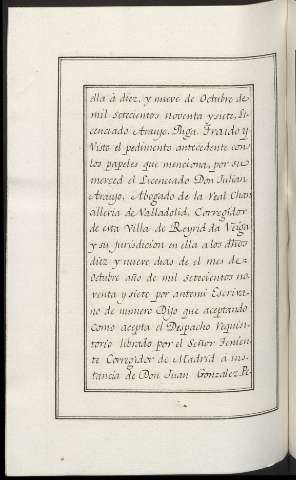 ella à diez, y nueve de Octubre de
mil setecientos noventa y siete, Li-
cenciado Araujo. Puga. Traido y
Visto el pedimento antecedente con
los papeles que menciona, por su
merced el Licenciado Don Julian
Araujo, Abogado de la Real Chan
cilleria de Valladolid, Corregidor
de esta Villa de Rey
y su jurisdicion en ella a los dhos
diez y nueve dias de el mes de
Octubre año de mil setecientos no-
venta y siete por antemi Escriva-
no de numero Dijo que aceptando
como acepta el Despacho requisi-
torio librado por el Señor Tenien-
te Corregidor de Madrid á ins-
tancia de Don Juan Gonzalez Pe-